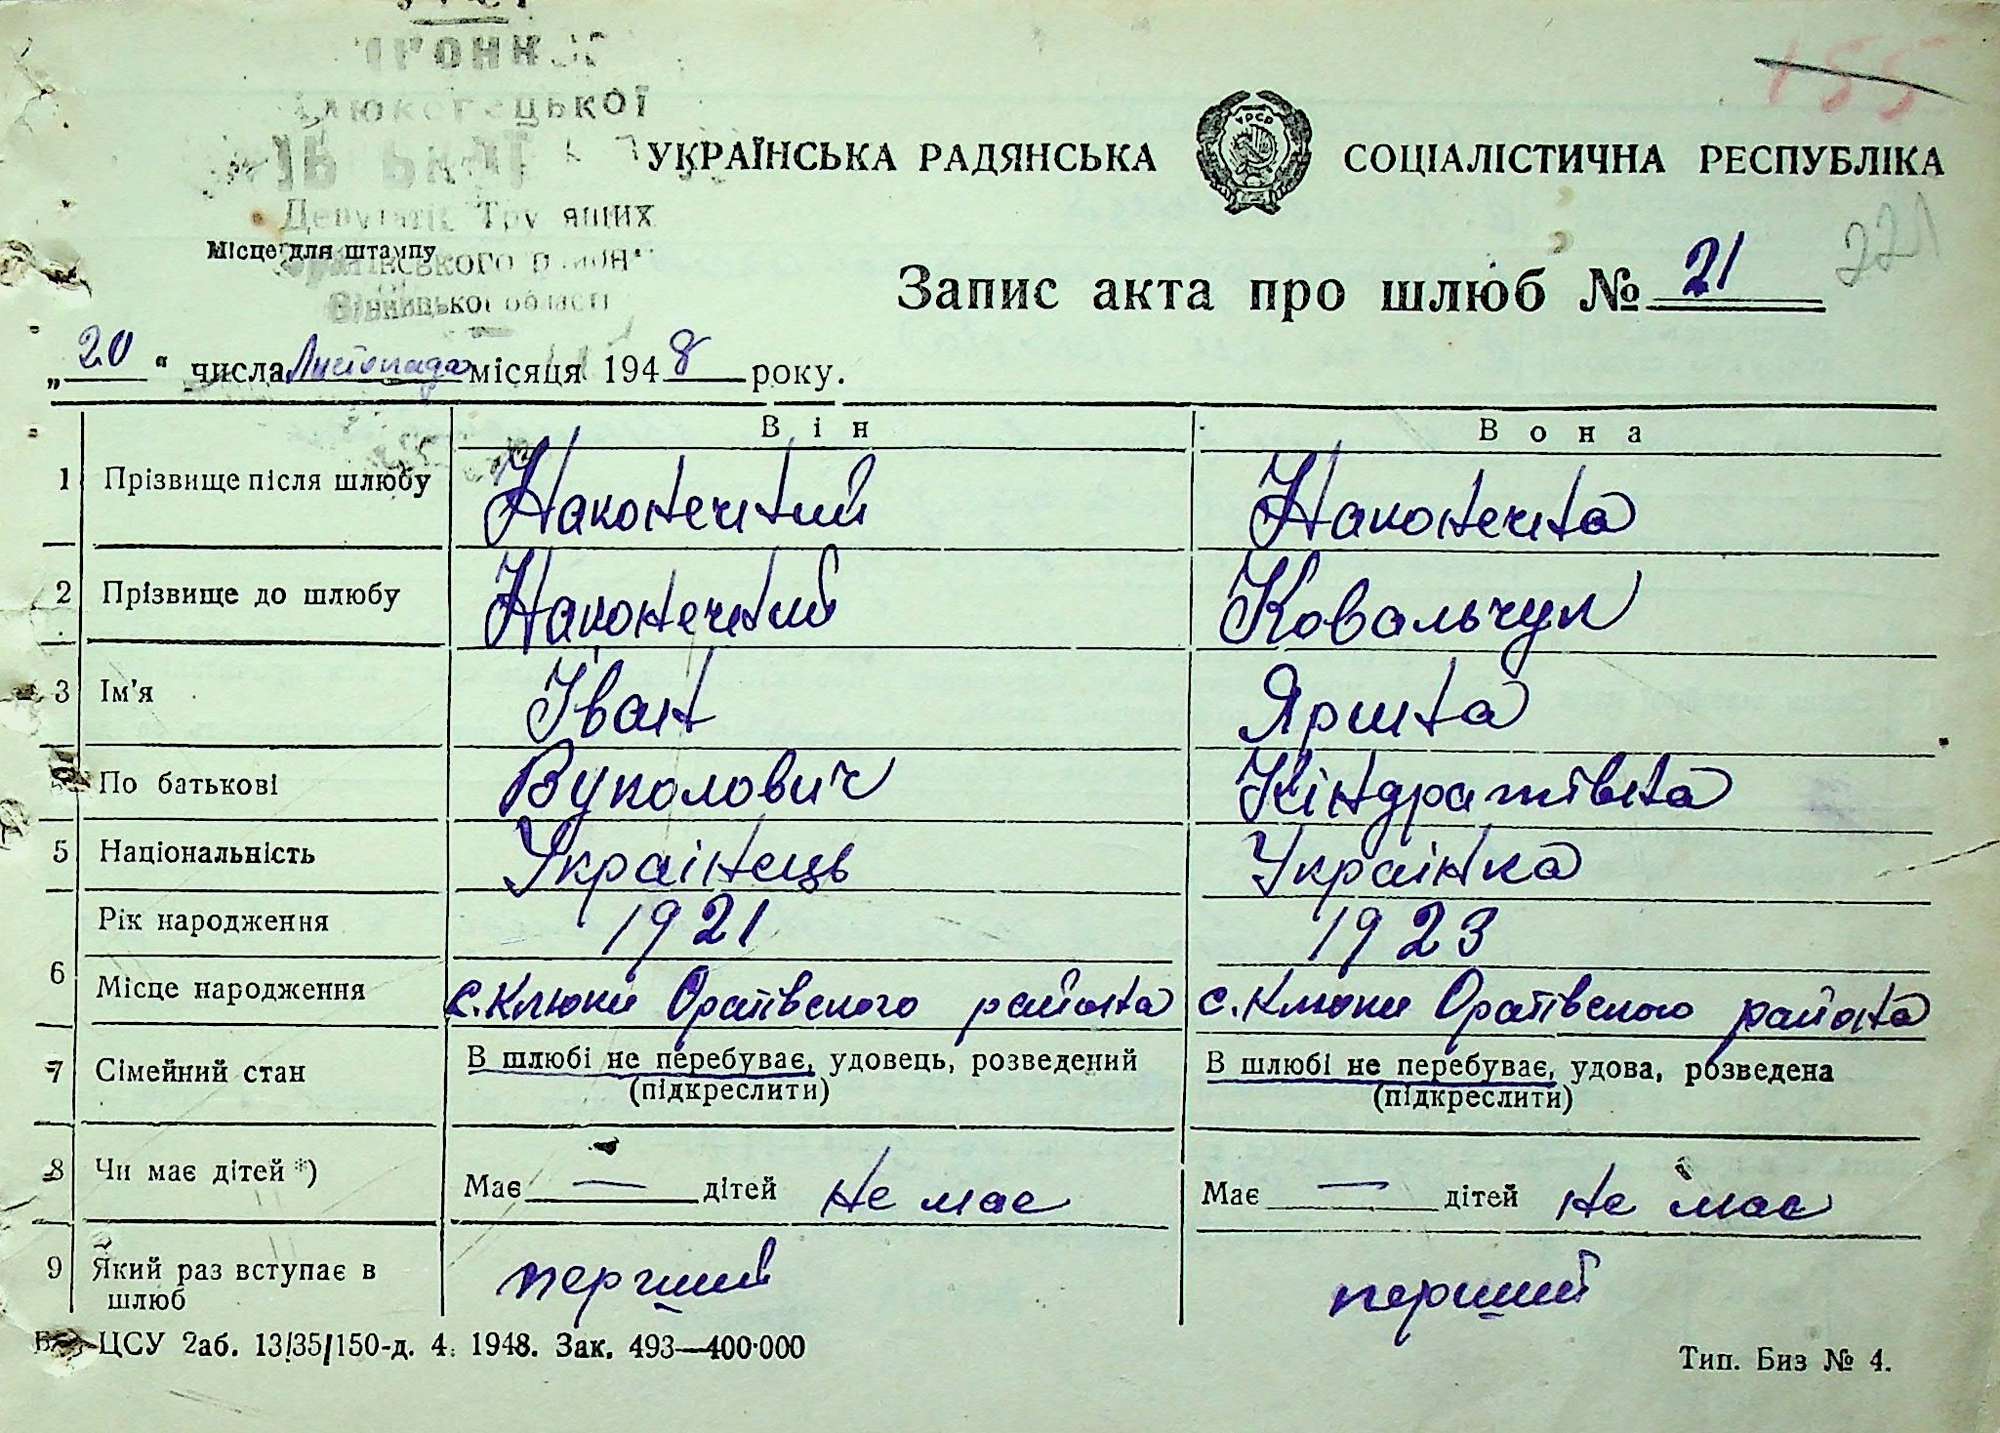 155
УКРАЇНСЬКА РАДЯНСЬКА СОЦІАЛІСТИЧНА РЕСПУБЛІКА
УРСР
Депутатів Трудящих
Місце для штампу
Вінницької області
Запис акта про шлюб № 21
221
„20“ числа Листопада місяця 1948 року.
Він Вона
1 Прізвище після шлюбу Наконечний Наконечна
2 Прізвище до шлюбу Наконечний Ковальчук
3 Ім'я Іван Ярина
По батькові Вуколович Кіндратівна
5 Національність Українець Українка
Рік народження 1921 1923
6 Місце народження с. Клюки Оратівського района с. Клюки Оратівського района
7 Сімейний стан В шлюбі не перебуває, удовець, розведений В шлюбі не перебуває, удова, розведена
(підкреслити) (підкреслити)
8 Чи має дітей *) Має — дітей не має Має — дітей не має
9 Який раз вступає в шлюб перший перший
ЦСУ 2аб. 13/35/150-д. 4. 1948. Зак. 493—400·000 Тип. Биз № 4.